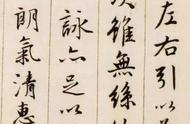 左右引以
次雖無絲
詠亦足以
朗氣清惠